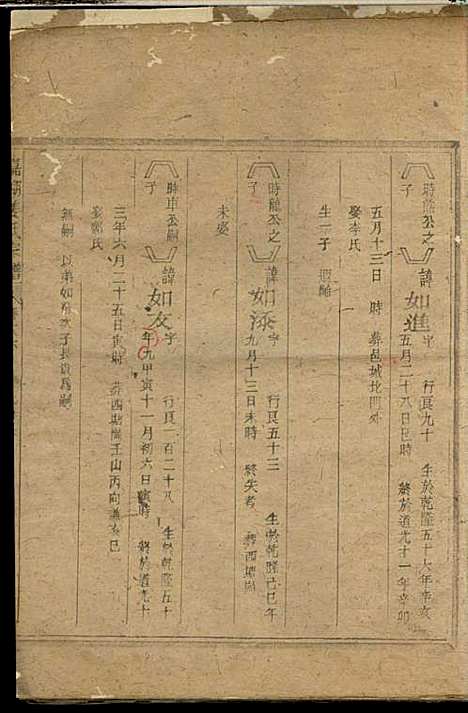 時龍公之子
諱如進字 行良九十 生於乾隆五十六年辛亥
五月二十八日巳時 終於道光十一年辛卯
五月十三日 時 葬邑城北門外
娶李氏
生一子
時龍公之子
諱如漆字 行良五十三 生於乾隆己巳年
九月十三日未時 終失考 葬西塘
未娶
時申公嗣子
諱如友字 行良一百二十八 生於乾隆五十
年九甲寅十一月初六日寅時 終於道光十
三年六月二十五日寅時 葬西塘 王山丙向 亥巳
娶鄭氏
無嗣 以弟如 次子長貴爲嗣
氏宗譜